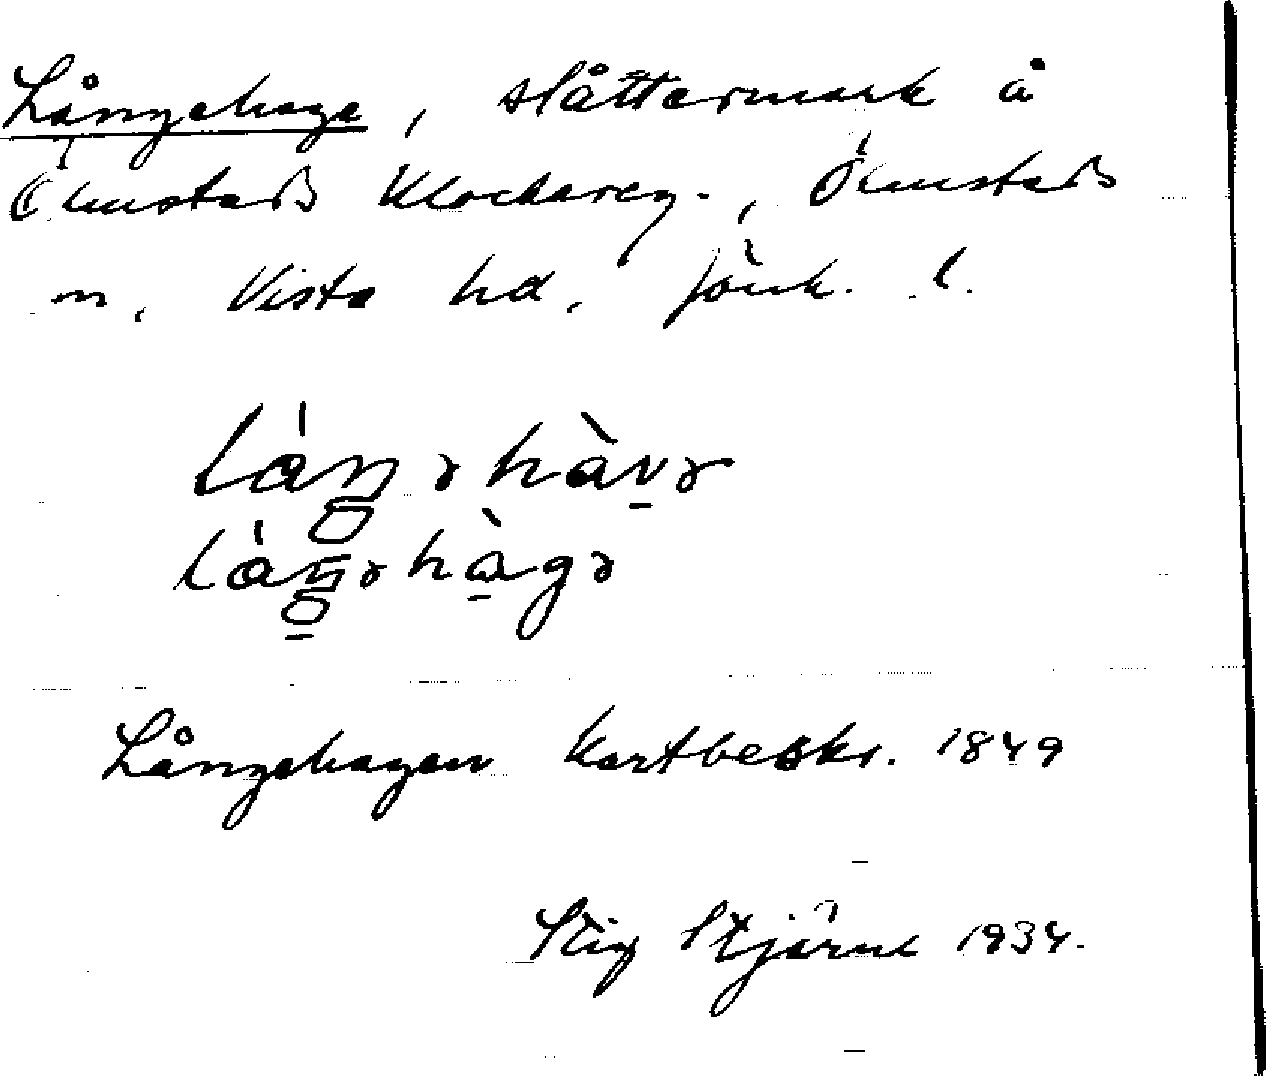 Långehage, slåttermark å
Ölmstads Klockareg., Ölmstads
n, Vista hd, Jönk. l.
láŋəhàvə
làŋəhàgə
Långehagen Kartbeskr. 1849
Stig Stjärne 1934.